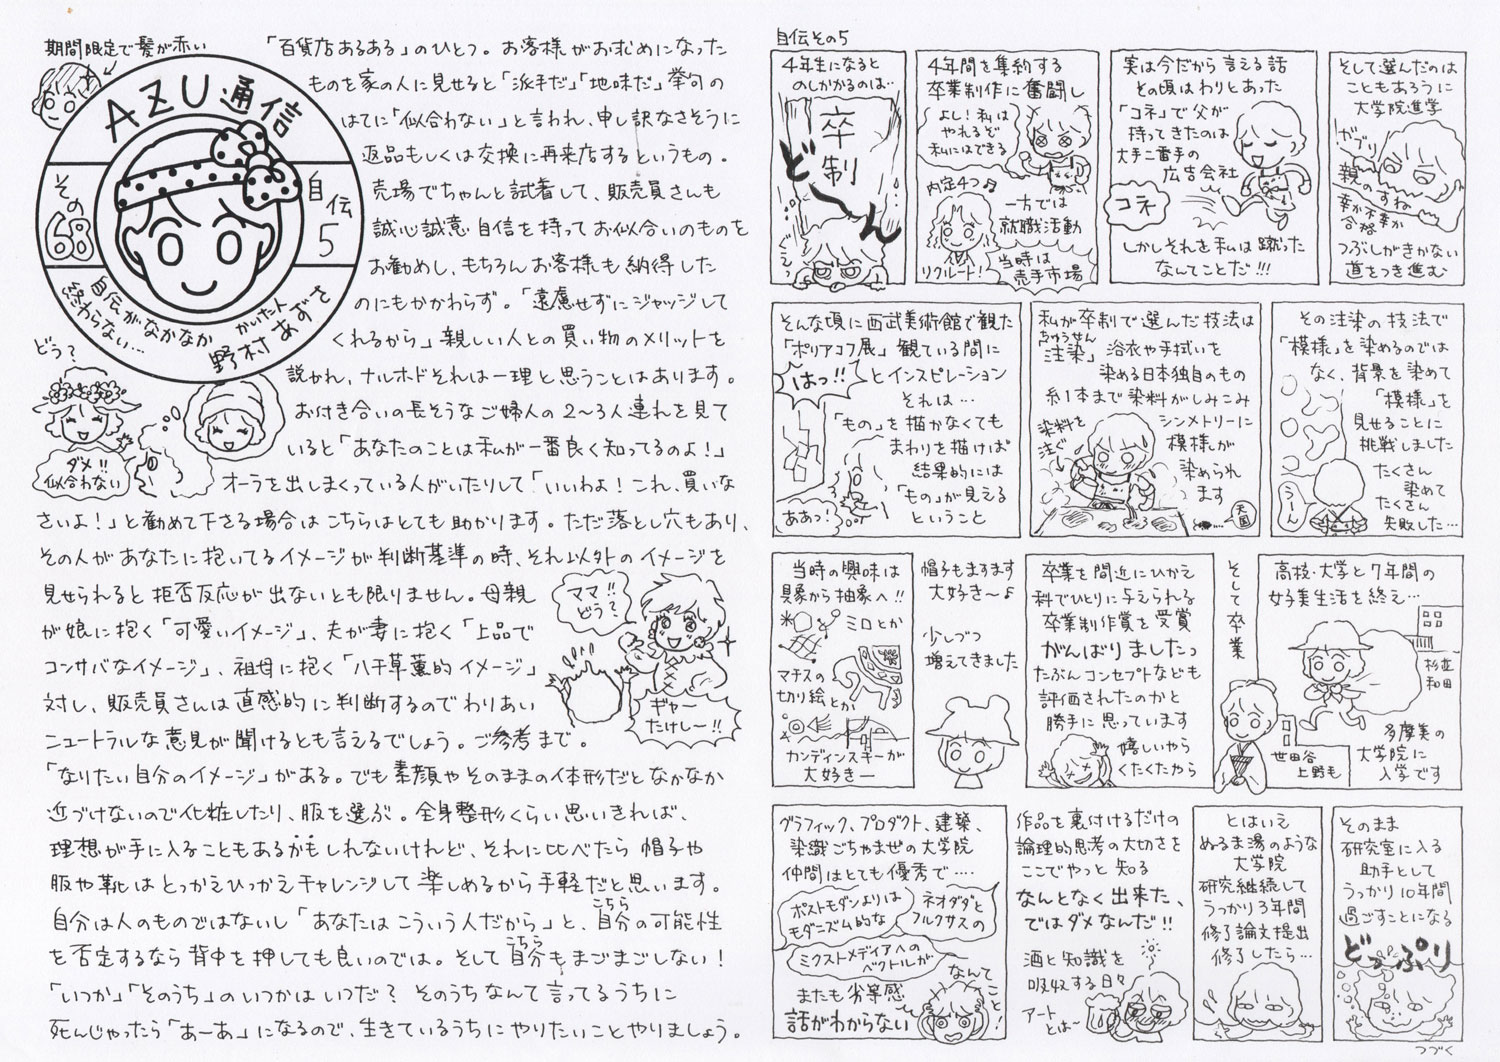 期間限定で髪が赤い
AZU通信
その68
自伝5
自伝がなかなか
終わらない…
かいたント
野村あずさ
「百貨店あるある」のひとつ。お客様がお求めになった
ものを家の人に見せると「派手だ」「地味だ」挙句の
はてに「似合わない」と言われ、申し訳なさそうに
返品もしくは交換に再来店するというもの。
売場でちゃんと試着して、販売員さんも
誠心誠意自信を持ってお似合いのものを
お勧めし、もちろんお客様も納得した
のにもかかわらず。「遠慮せずにジャッジして
くれるから」親しい人との買い物のメリットを
説かれ、ナルホドそれは一理と思うことはあります。
お付き合いの長そうなご婦人の2〜3人連れを見て
いると「あなたのことは私が一番良く知ってるのよ!」
オーラを出しまくっている人がいたりして「いいわよ!これ、買いな
さいよ!」と勧めて下さる場合はこちらはとても助かります。ただ落とし穴もあり、
その人があなたに抱いてるイメージが判断基準の時、それ以外のイメージを
見せられると拒否反応が出ないとも限りません。母親
が娘に抱く「可愛いイメージ」、夫が妻に抱く「上品で
コンサバなイメージ」、祖母に抱く「八千草薫的イメージ」
対し、販売員さんは直感的に判断するのでわりあい
ニュートラルな意見が聞けるとも言えるでしょう。ご参考まで。
「なりたい自分のイメージ」がある。でも素顔やそのままの体形だとなかなか
近づけないので化粧したり、服を選ぶ。全身整形くらい思いきれば、
理想が手に入ることもあるかもしれないけれど、それに比べたら帽子や
服や靴はとっかえひっかえチャレンジして楽しめるから手軽だと思います。
自分は人のものではないし「あなたはこういう人だから」と、自分の可能性
こちら
を否定するなら背中を押しても良いのでは。そして自分もまごまごしない!
こちら
「いつか」「そのうち」のいつかはいつだ?そのうちなんて言ってるうちに
死んじゃったら「あーあ」になるので、生きているうちにやりたいことやりましょう。
どう?
ダメ!!
似合わない
ママ!!
どう?
ギャー
たけしー!!
自伝その5
4年生になると
のしかかるのは…
卒制
どーん
4年間を集約する
卒業制作に奮闘し
よし!私は
やれるぞ
私にはできる
内定4つ♪
リクルート!
一方では
就職活動
当時は
売手市場
実は今だから言える話
その頃はわりとあった
「コネ」で父が
持ってきたのは
大手二番手の
広告会社
コネ
しかしそれを私は蹴った
なんてことだ!!!
そして選んだのは
こともあろうに
大学院進学
ガブリ
親のすね
幸か不幸か
合格
つぶしがきかない
道をつき進む
そんな頃に西武美術館で観た
「ポリアコフ展」観ている間に
はっ!!
とインスピレーション
それは…
「もの」を描かなくても
まわりを描けば
結果的には
「もの」が見える
ということ
ああっ!
私が卒制で選んだ技法は
ちゅうせん
「注染」浴衣や手拭いを
染める日本独自のもの
糸1本まで染料がしみこみ
染料を
注ぐ
シンメトリーに
模様が
染められ
ます
天国
その注染の技法で
「模様」を染めるのでは
なく、背景を染めて
「模様」を
見せることに
挑戦しました
たくさん
染めて
たくさん
失敗した…
うーん
当時の興味は
具象から抽象へ!!
ミロとか
マチスの
切り絵とか、
カンディンスキーが
大好きー
帽子もますます
大好き〜よ
少しづつ
増えてきました
卒業を間近にひかえ
科でひとりに与えられる
卒業制作賞を受賞
がんばりましたっ
たぶんコンセプトなども
評価されたのかと
勝手に思っています
嬉しいやら
くたくたやら
そして卒業
高校・大学と7年間の
女子美生活を終え…
杉並
和田
世田谷
上野毛
多摩美の
大学院に
入学です
グラフィック、プロダクト、建築、
染織ごちゃまぜの大学院
仲間はとても優秀で…
ポストモダンよりは
モダニズム的な
ネオダダと
フルクサスの
ミクストメディアへの
ベクトルが
なんて
こと!
またも劣等感
話がわからない
作品を裏付けるだけの
論理的思考の大切さを
ここでやっと知る
なんとなく出来た、
ではダメなんだ!!
酒と知識を
吸収する日々
アート
とは〜
とはいえ
ぬるま湯のような
大学院
研究継続して
うっかり3年間
修了論文提出
修了したら…
そのまま
研究室に入る
助手として
うっかり10年間
過ごすことになる
どっぷり
つづく